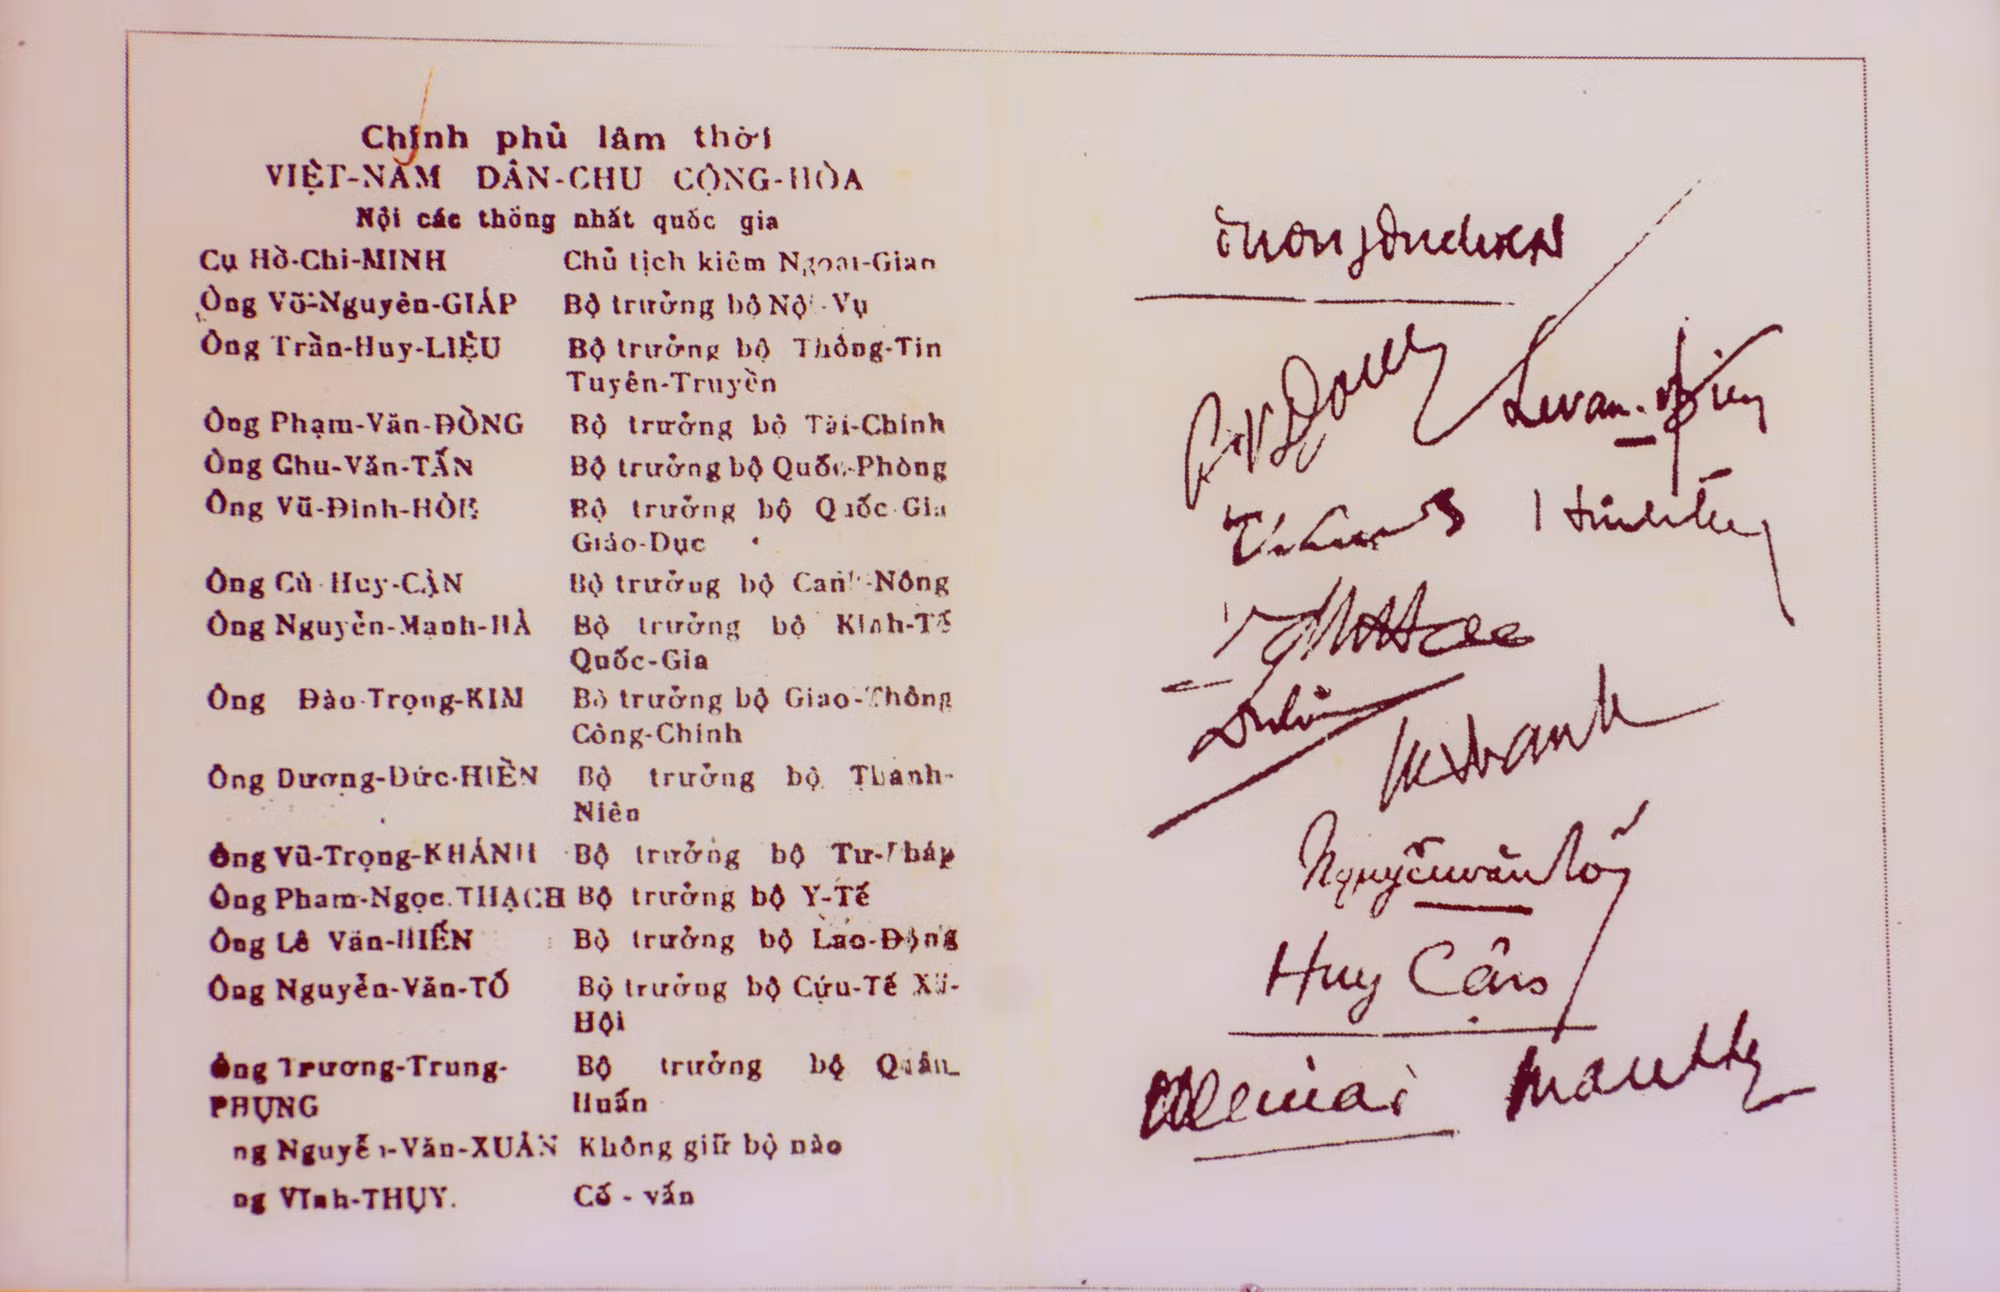 Chính phủ lâm thời
VIỆT-NAM DÂN-CHU CỘNG-HÒA
Nội các thống nhất quốc gia
Cụ Hồ-Chi-MINH Chủ tịch kiêm Ngoại-Giao
Ông Võ-Nguyên-GIÁP Bộ trưởng bộ Nội-Vụ
Ông Trần-Huy-LIỆU Bộ trưởng bộ Thông-Tin
Tuyên-Truyền
Ông Phạm-Văn-ĐỒNG Bộ trưởng bộ Tài-Chính
Ông Chu-Văn-TẤN Bộ trưởng bộ Quốc-Phòng
Ông Vũ-Đinh-HÒE Bộ trưởng bộ Quốc-Gia
Giáo-Dục
Ông Cù-Huy-CẬN Bộ trưởng bộ Canh-Nông
Ông Nguyễn-Mạnh-HÀ Bộ trưởng bộ Kinh-Tế
Quốc-Gia
Ông Đào-Trọng-KIM Bộ trưởng bộ Giao-Thông
Công-Chính
Ông Dương-Đức-HIỀN Bộ trưởng bộ Thanh-
Niên
Ông Vũ-Trọng-KHÁNH Bộ trưởng bộ Tư-Pháp
Ông Pham-Ngọc.THẠCH Bộ trưởng bộ Y-Tế
Ông Lê Văn-HIẾN Bộ trưởng bộ Lao-Động
Ông Nguyễn-Văn-TỐ Bộ trưởng bộ Cứu-Tế Xã-
Hội
Ông Trương-Trung- Bộ trưởng bộ Quân-
PHỤNG Huấn
ng Nguyễn-Văn-XUÂN Không giữ bộ nào
ng Vĩnh-THỤY. Cố - vấn
Nguyễn văn Tố
Huy Cận